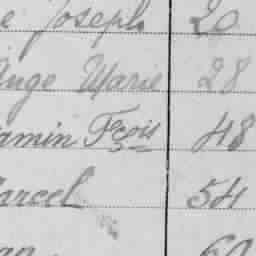 e Joseph 20
ange Marie 28
amin Fçois 48
arcel 54
60